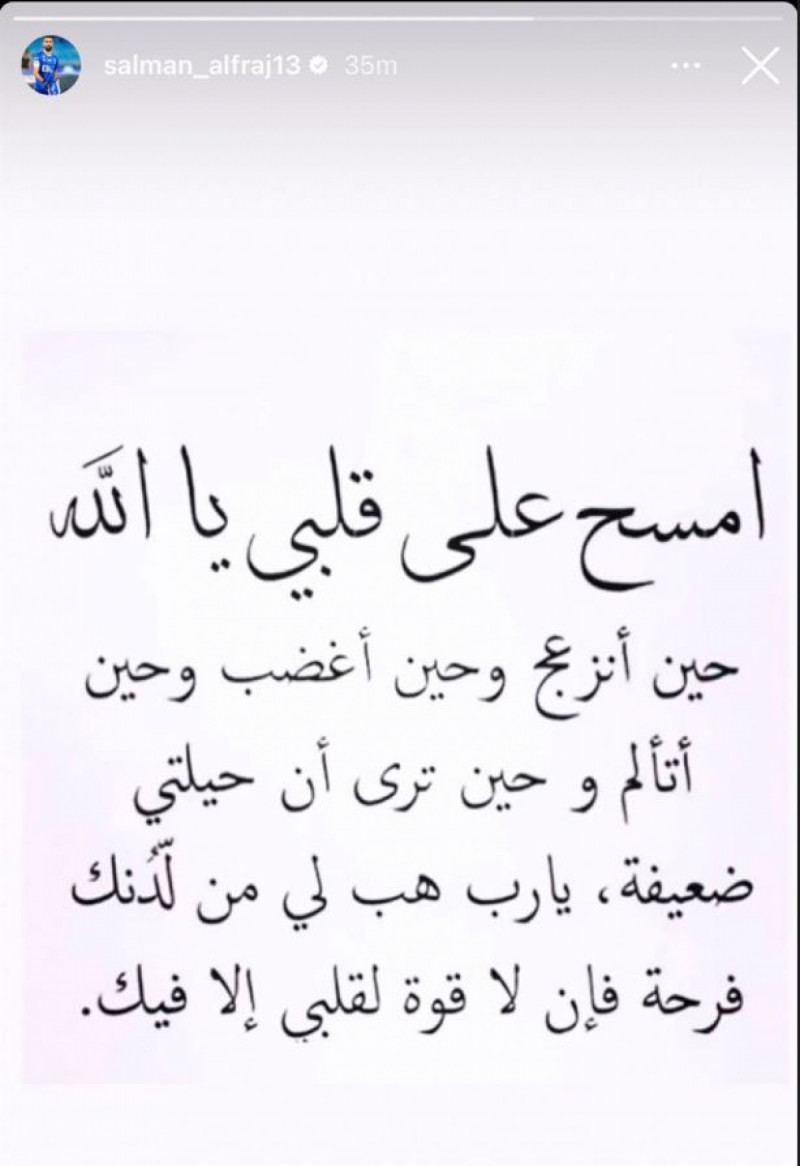 salman_alfraj13 35m
امسح على قلبي يا الله
حين أنزعج وحين أغضب وحين
أتألم و حين ترى أن حيلتي
ضعيفة، يارب هب لي من لَّدُنك
فرحة فإن لا قوة لقلبي إلا فيك.